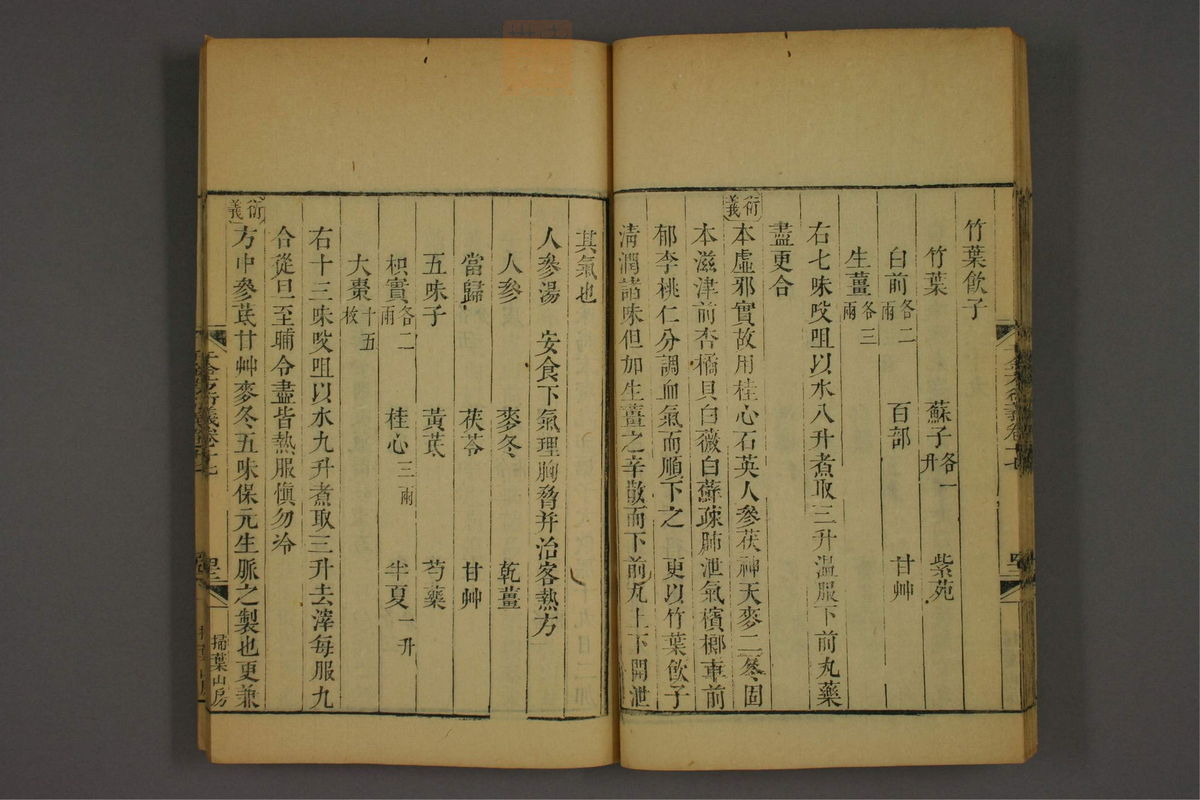 竹葉飲子
竹葉 蘇子各一升 紫苑
白前各二兩 百部 甘艸
生薑各三兩
右七味㕮咀以水八升煮取三升温服下前丸藥
盡更合
衍義 本虛邪實故用桂心石英人參茯神天麥二冬固
本滋津前杏橘貝白薇白蘇疎肺泄氣檳榔車前
郁李桃仁分調血氣而順下之 更以竹葉飲子
清潤諸味但加生薑之辛散而下前丸上下開泄
其氣也
人參湯 安食下氣理胸脅并治客熱方
人參 麥冬 乾薑
當歸 茯苓 甘艸
五味子 黃芪 芍藥
枳實各二兩 桂心三兩 半夏一升
大棗十五枚
右十三味㕮咀以水九升煮取三升去滓每服九
合從旦至晡令盡皆熱服愼勿冷
衍義 方中參芪甘艸麥冬五味保元生脈之製也更兼
千金方衍義卷十七
掃葉山房